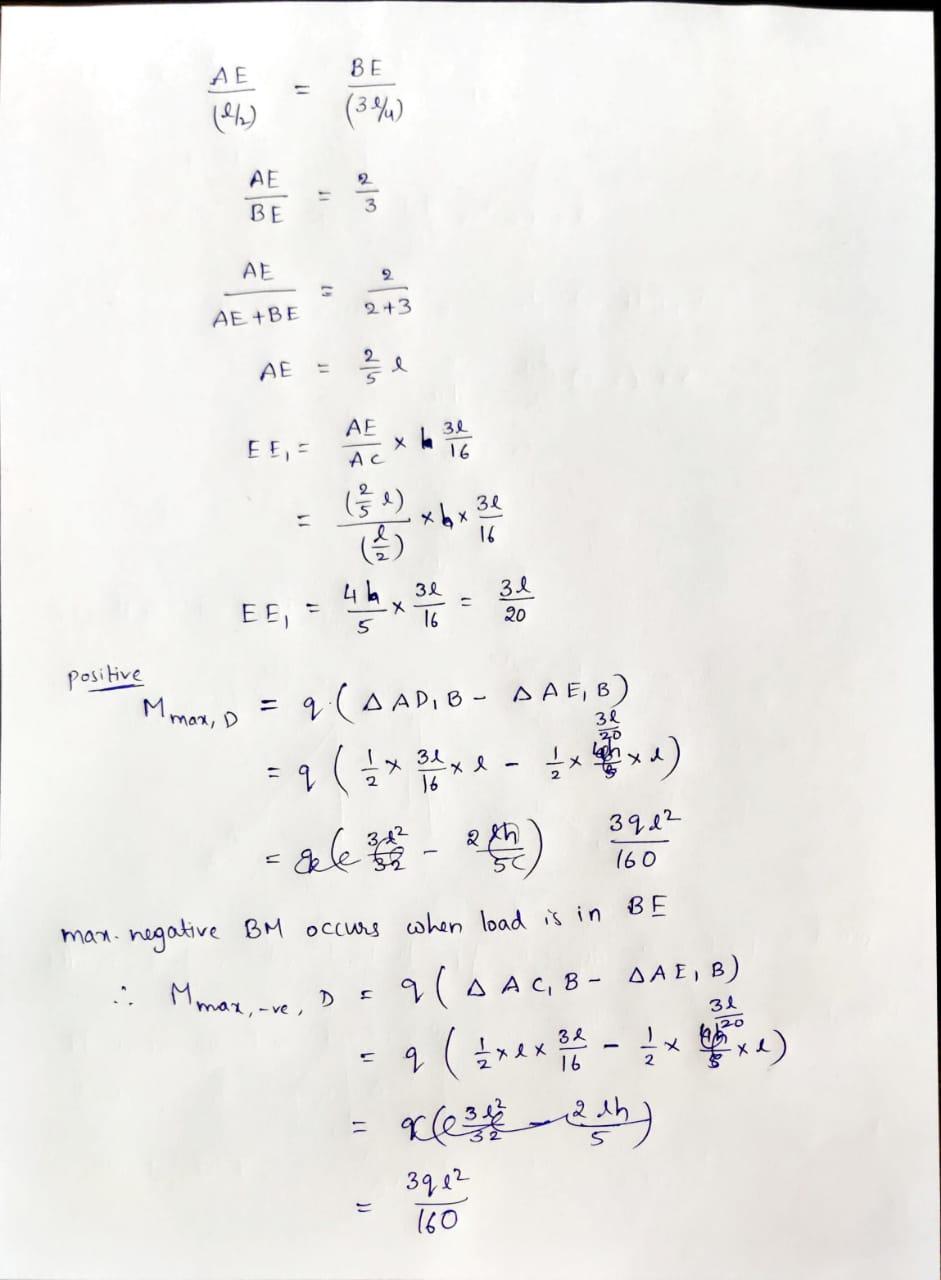 AE/(l/2) = BE/(3l/4)
AE/BE = 2/3
AE/(AE+BE) = 2/(2+3)
AE = 2/5 l
EE₁ = AE/AC × 3l/16
= (2/5 l)/(l/2) × 3l/16
EE₁ = 4/5 × 3l/16 = 3l/20
Positive
M max, D = q (Δ AD₁B - Δ AE₁B)
= q (1/2 × 3l/16 × l - 1/2 × 3l/20 × l)
= 3ql²/160
max. negative BM occurs when load is in BE
∴ M max, -ve, D = q (Δ AC₁B - Δ AE₁B)
= q (1/2 × l × 3l/16 - 1/2 × 3l/20 × l)
= 3ql²/160